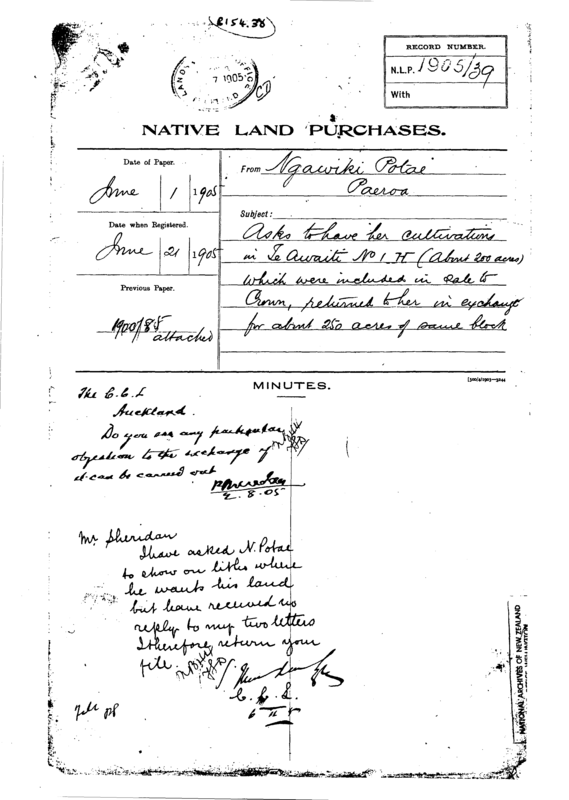 B154.38
LANDS OFFICE
7 1905
RECORD NUMBER.
N.L.P. 1905/39
With
NATIVE LAND PURCHASES.
Date of Paper.
June 1 1905
Date when Registered.
June 21 1905
Previous Paper.
1900/85
attached
From Ngawiki Potae
Paeroa
Subject:
Asks to have her cultivations
in Te Awaite No 1 H (About 200 acres)
which were included in sale to
Crown, returned to her in exchange
for about 250 acres of same block
MINUTES.
The C.C.L
Auckland.
Do you see any particular
objection to the exchange if
it can be carried out
2.8.05
Mr Sheridan
I have asked N. Potae
to show on litho where
he wants his land
but have received no
reply to my two letters
I therefore return your
file.
C.C.L.
NATIONAL ARCHIVES OF NEW ZEALAND